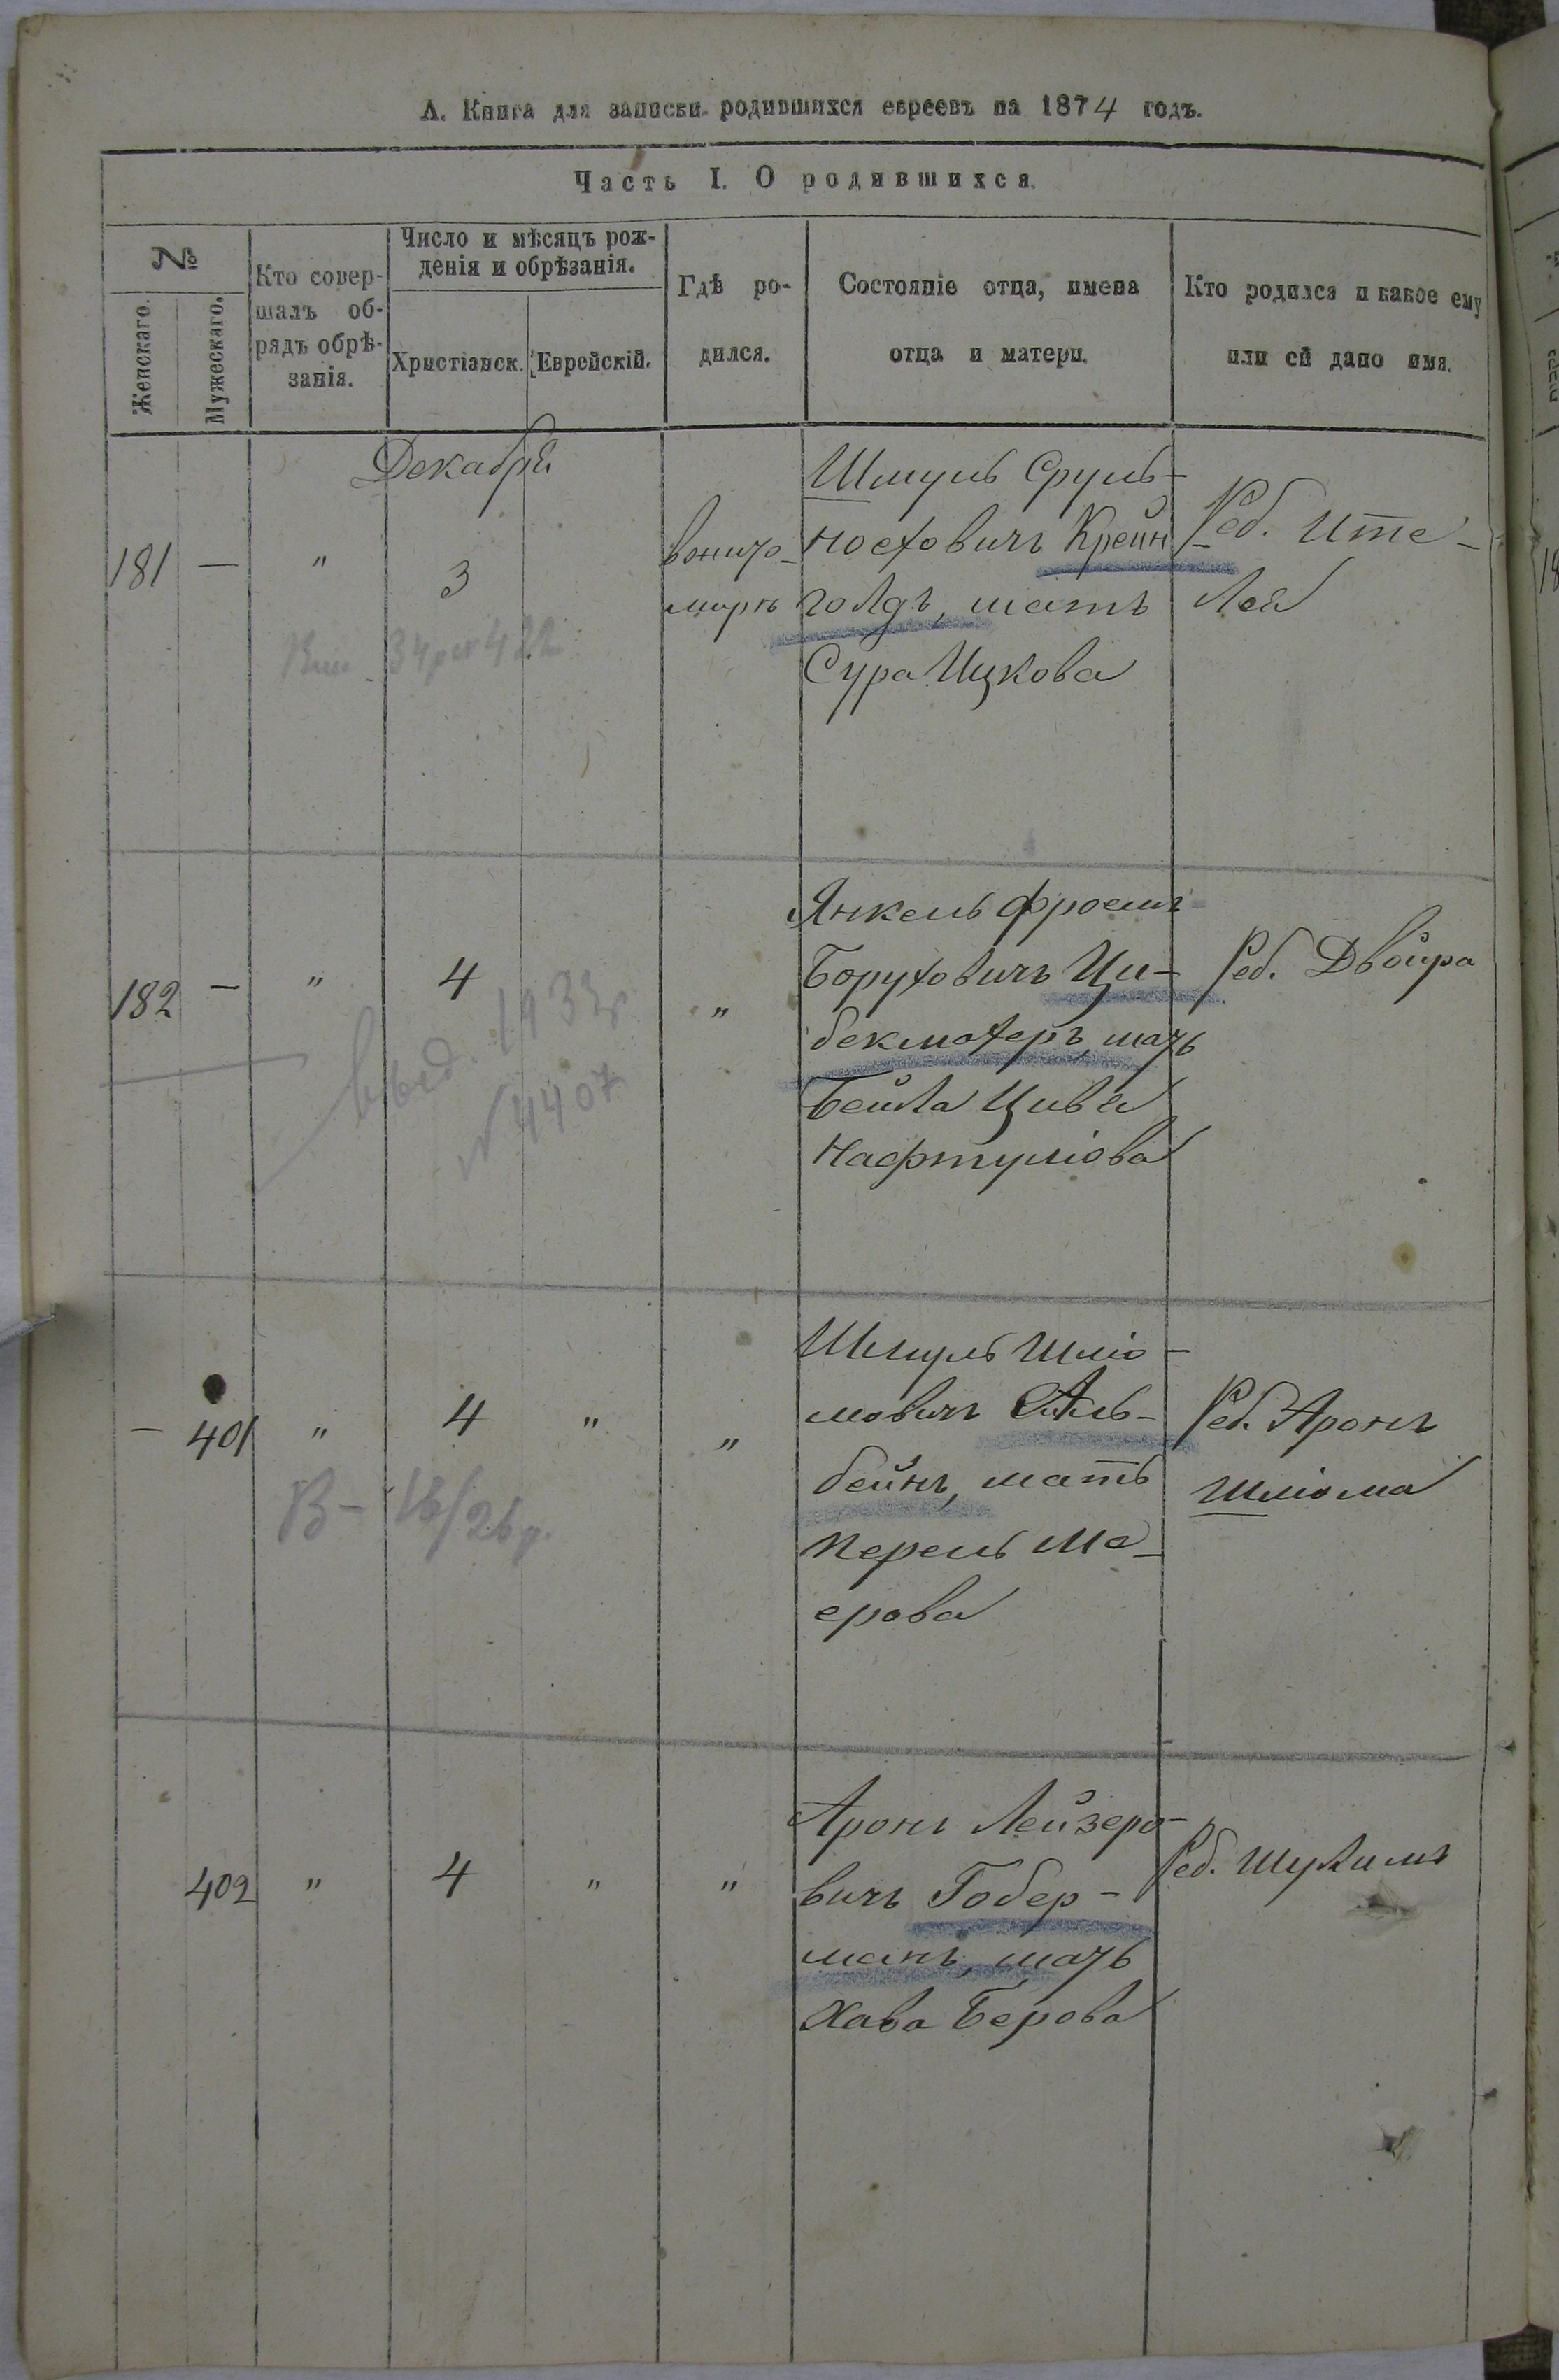 А. Книга для записки родившихся евреевъ на 1874 годъ.
Часть I. О родившихся.
№
Женскаго.
Мужескаго.
Кто совер-
шалъ об-
рядъ обрѣ-
занія.
Число и мѣсяцъ рож-
денія и обрѣзанія.
Христіанск.
Еврейскій.
Гдѣ ро-
дился.
Состояніе отца, имена
отца и матери.
Кто родился и какое ему
или ей дано имя.
Декабря
181 — " 3
Шмуль Сруль-
Ноехович Крейн
голдъ, мать
Сура Ицкова
Реб. Ите-
Лея
182 — " 4 "
Янкель Фроимъ
Боруховичъ Ци-
бекмахеръ, мать
Бейла Цивья
Нафтуліова
Реб. Двойра
1933г
№ 4407
— 401 " 4 " "
Шмуль Шліо-
мовичъ Аль-
бейнъ, мать
Перель Ма-
ерова
Реб. Аронъ
Шліома
402 " 4 " "
Аронъ Лейзеро-
вичъ Гобер-
манъ, мать
Хава Берова
Реб. Шулимъ